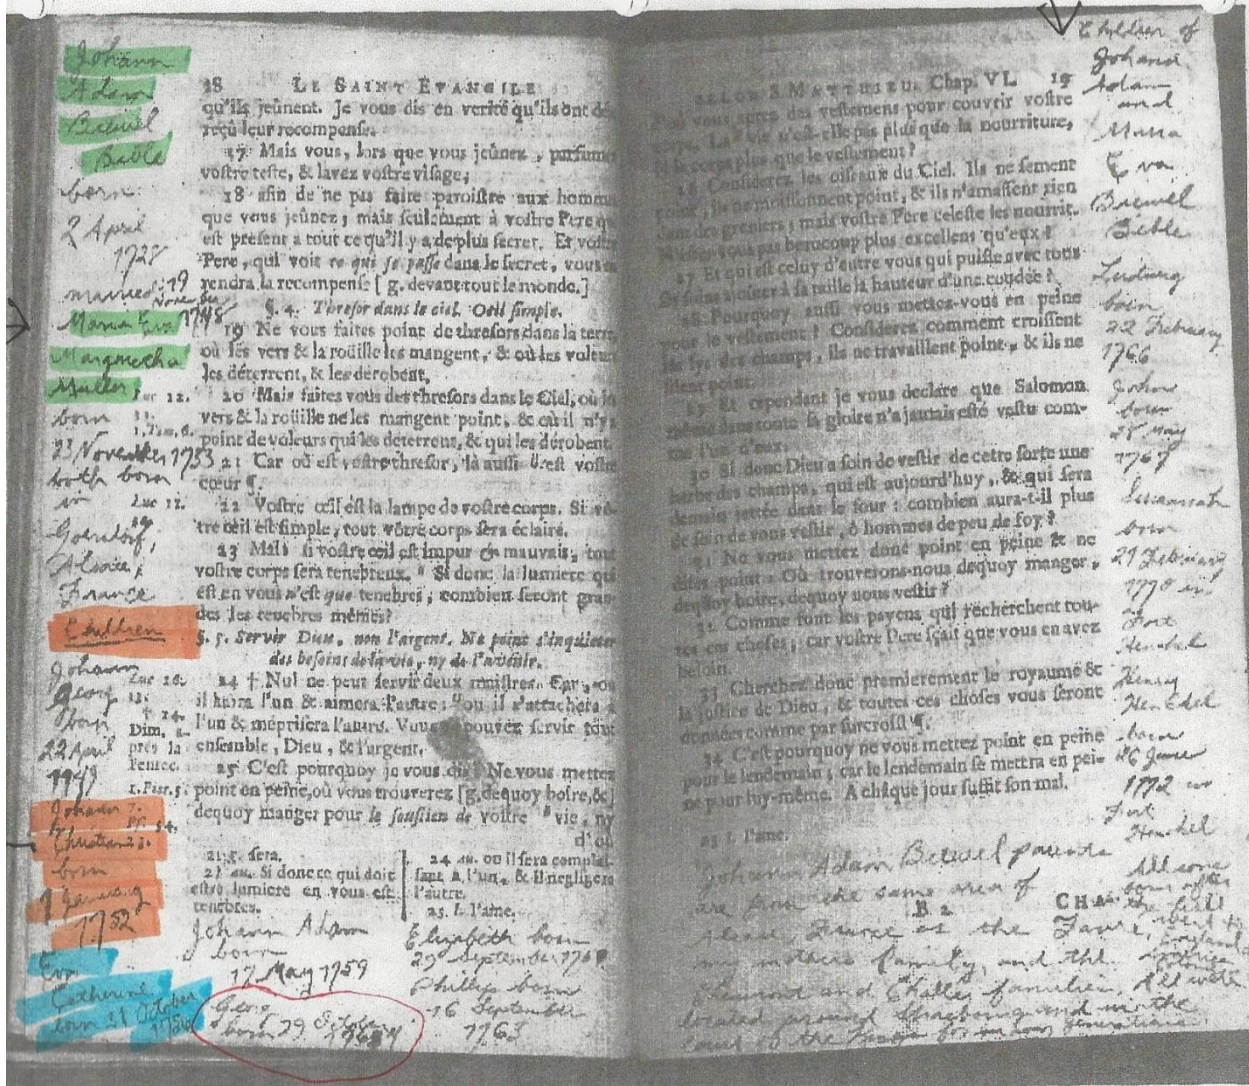 Johann
Adam
Bible
born
2 April
1728
married 19
November
Maria Eva 1748
Müller
born
23 November 1733
both born
in
France
Children
Johann
Georg
born
22 April
1749
Johann
Christian
born
9 January
1752
Eva
Catherine
born 21 October
Luc 12.
Luc 11.
Luc 16.
Dim.
18 LE SAINT EVANGILE
qu'ils jeûnent. Je vous dis en verité qu'ils ont dé
reçû leur recompense.
17 Mais vous, lors que vous jeûnez, parfume
vostre teste, & lavez vostre visage;
18 afin de ne pas faire paroistre aux homme
que vous jeûnez; mais seulement à vostre Pere q
est present à tout ce qu'il y a de plus secret. Et vostre
Pere, qui voit ce qui se passe dans le secret, vous
rendra la recompense [g. devant tout le monde.]
§. 4. Thresor dans le ciel. Oeil simple.
19 Ne vous faites point de thresors dans la terre
où les vers & la roüille les mangent, & où les voleurs
les déterrent, & les dérobent.
20 Mais faites vous des thresors dans le Ciel, où
vers & la roüille ne les mangent point, & où il n'y a
point de voleurs qui les déterrent, & qui les dérobent.
21 Car où est vostre thresor, là aussi est vostre
cœur ¶.
22 Vostre œil est la lampe de vostre corps. Si vô
tre œil est simple, tout vôtre corps sera éclairé.
23 Mais si vostre œil est impur & mauvais, tout
vostre corps sera tenebreux. Si donc la lumiere qui
est en vous n'est que tenebres, combien seront gran-
des les tenebres mêmes?
§. 5. Servir Dieu, non l'argent. Ne point s'inquieter
des besoins de la vie, ny de l'avenir.
24 † Nul ne peut servir deux maistres. Car, ou
il haïra l'un & aimera l'autre: ou il s'attachera à
l'un & méprisera l'autre. Vous pouvez servir tout
ensemble, Dieu, & l'argent.
25 C'est pourquoy je vous dis Ne vous mettez
point en peine, où vous trouverez [g. dequoy boire, &]
dequoy manger pour le soustien de vostre vie, ny
d'où
21. g. sera.
23 au. Si donc ce qui doit
estre lumiere en vous est
tenebres.
24 au. ou il sera complai-
sant à l'un, & il negligera
l'autre.
25. l. l'ame.
Johann Adam
born
17 May 1759
Georg
born 29 October
Elizabeth born
29 September
Phillip born
16 September
1763
SELON S MATTHIEU. Chap. VI. 19
d'où vous aurez des vestemens pour couvrir vostre
La vie n'est-elle pas plus que la nourriture,
& le corps plus que le vestement?
26 Considerez les oiseaux du Ciel. Ils ne sement
point, ils ne moissonnent point, & ils n'amassent rien
dans des greniers; mais vostre Pere celeste les nourrit.
vous pas beaucoup plus excellent qu'eux?
27 Et qui est celuy d'entre vous qui puisse avec tous
ses soins ajoûter à sa taille la hauteur d'une coudée?
28 Pourquoy aussi vous mettez-vous en peine
pour le vestement? Considerez comment croissent
les lys des champs, ils ne travaillent point, & ils ne
filent point.
29 Et cependant je vous declare que Salomon
même dans toute sa gloire n'a jamais esté vestu com-
me l'un d'eux.
30 Si donc Dieu a soin de vestir de cette sorte une
herbe des champs, qui est aujourd'huy, & qui sera
demain jettée dans le four: combien aura-t-il plus
de soin de vous vestir, ô hommes de peu de foy?
31 Ne vous mettez donc point en peine & ne
dites point: Où trouverons-nous dequoy manger,
dequoy boire, dequoy nous vestir?
32 Comme font les payens qui recherchent tou-
tes ces choses; car vostre Pere sçait que vous en avez
besoin.
33 Cherchez donc premierement le royaume &
la justice de Dieu, & toutes ces choses vous seront
données comme par surcroist ¶.
34 C'est pourquoy ne vous mettez point en peine
pour le lendemain; car le lendemain se mettra en pei-
ne pour luy-même. A chaque jour suffit son mal.
25 l. l'ame.
B 2 CHA
Johann Adam parents
are from the same area of
France as the
my mothers family, and the
and families, All were
located around and in the
Children of
Johann
Adam
and
Maria
Eva
Bible
Ludwig
born
22 February
1766
John
born
28 May
1767
born
21 February
1770 in
Fort
Henckel
Henry
Henckel
born
26
1772 in
Fort
Henckel